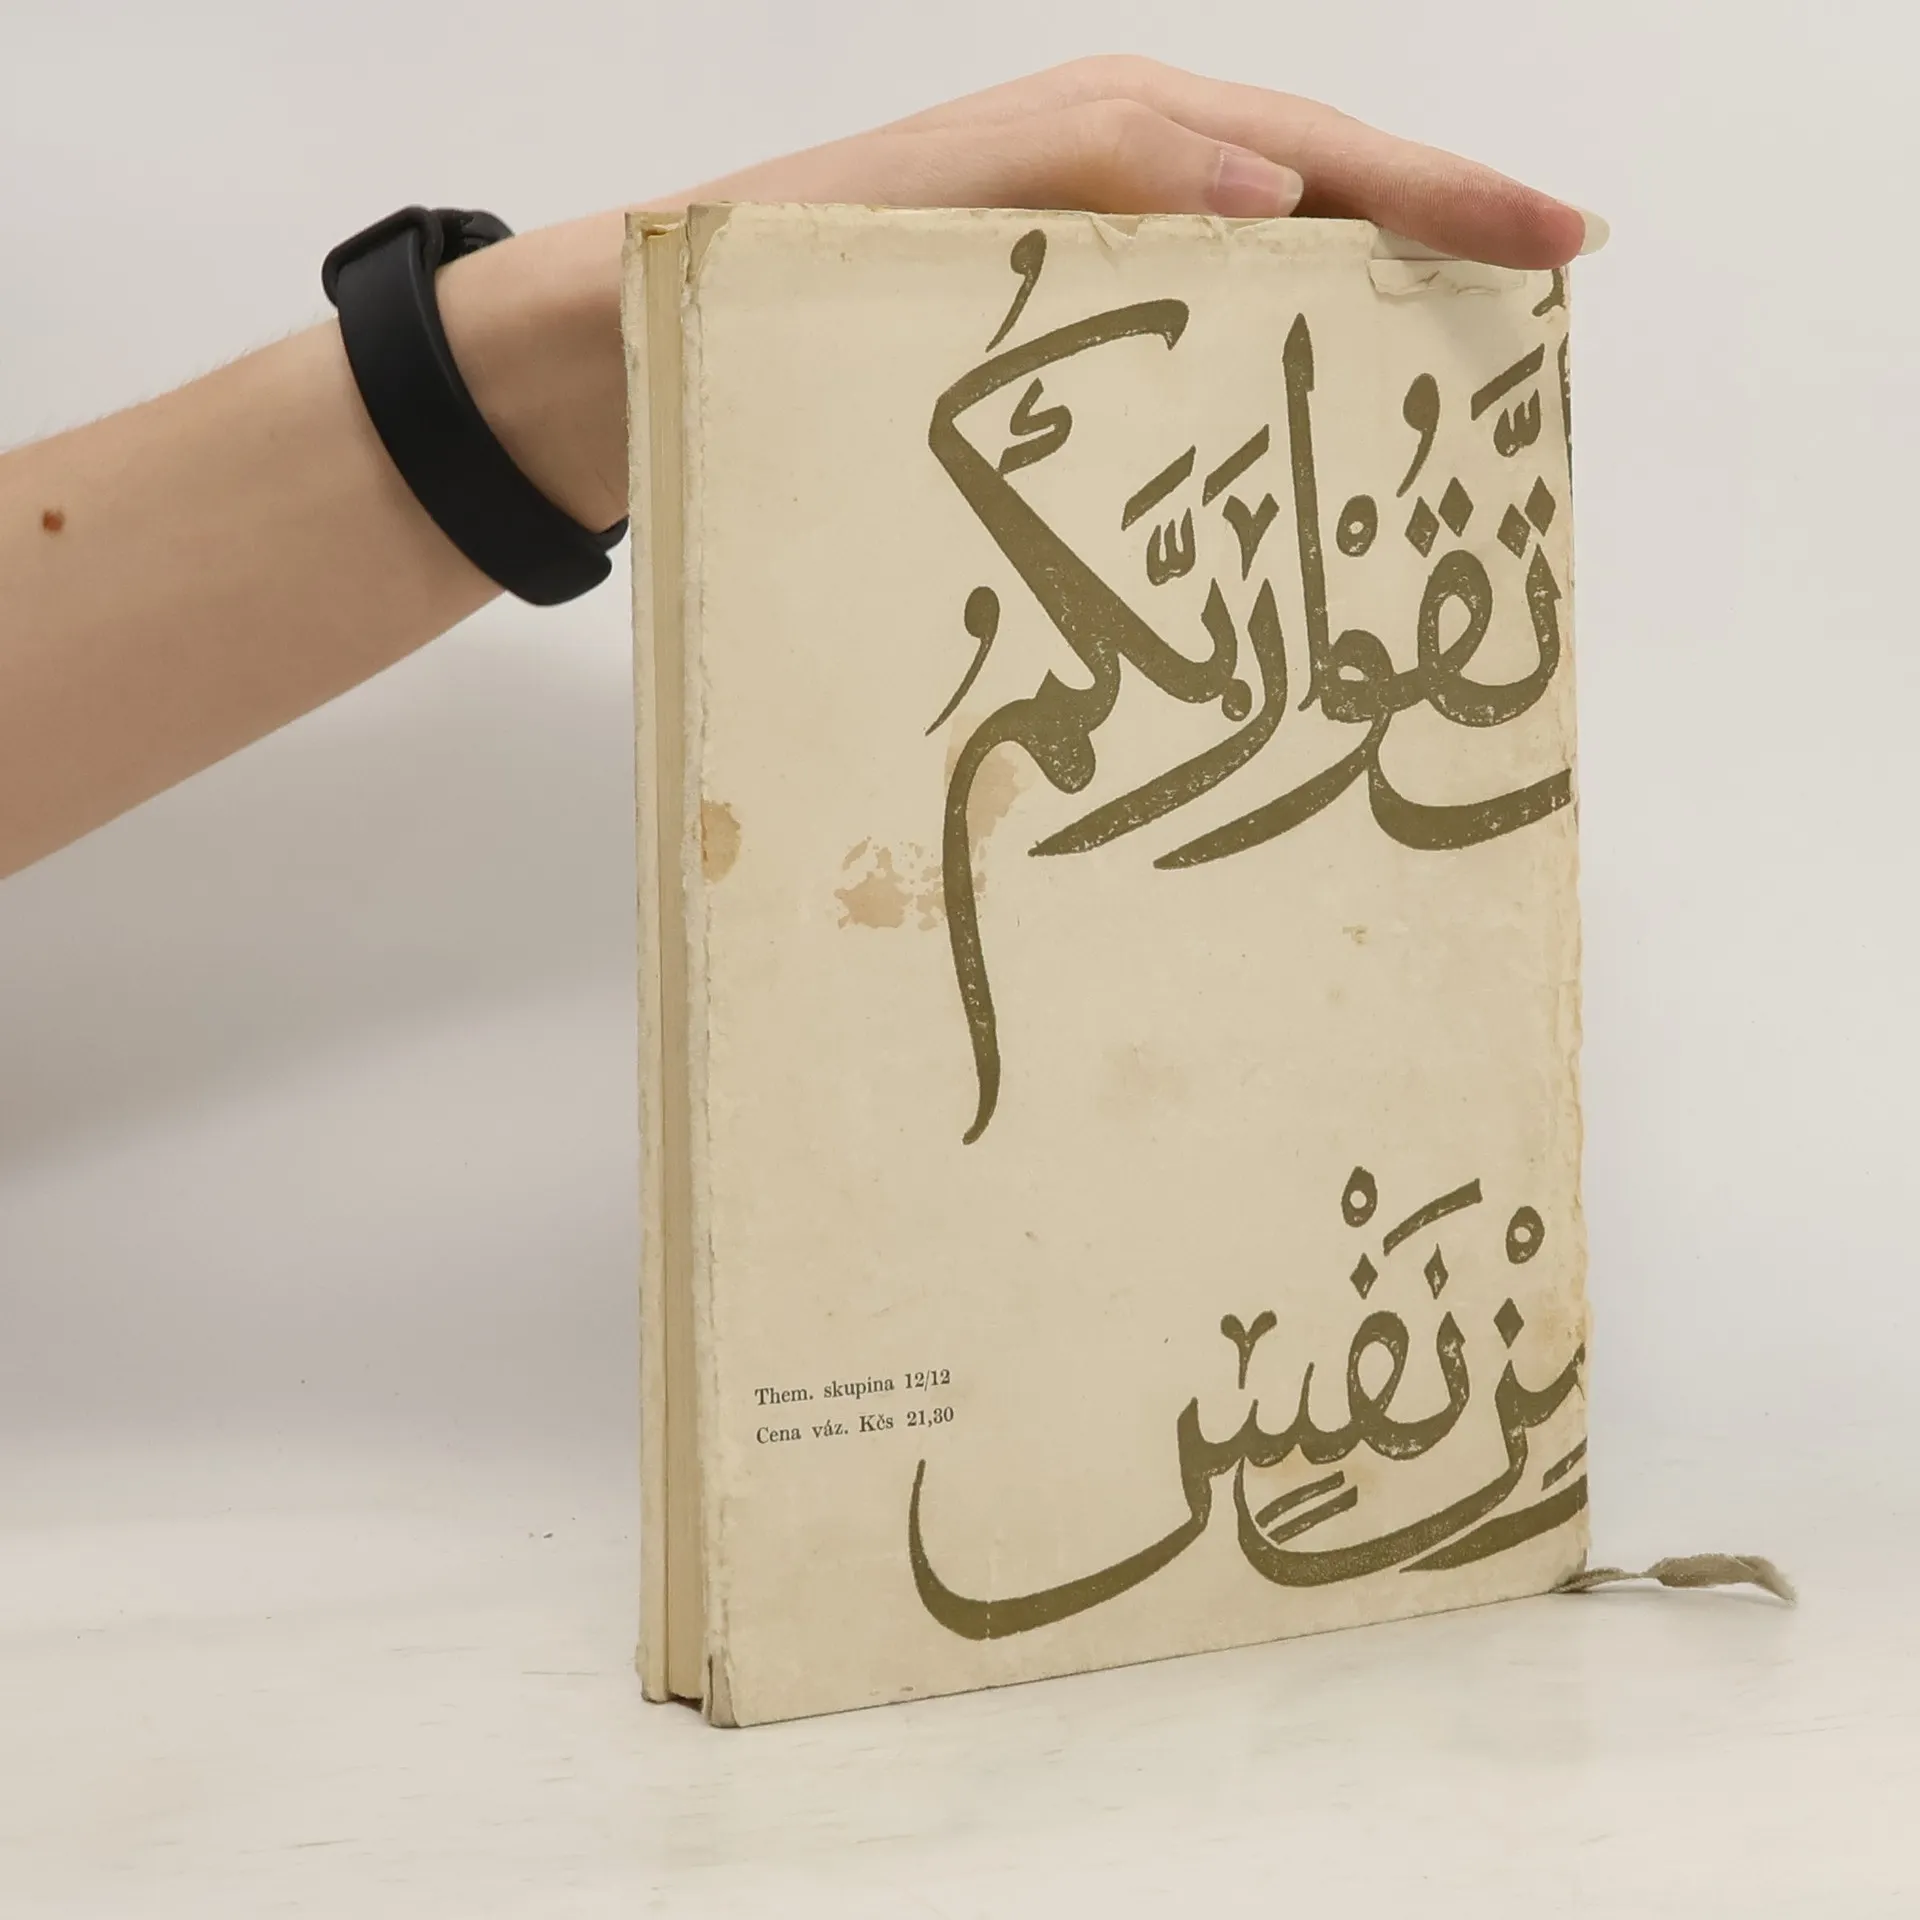 اتَّقُوْا رَبَّكُمُ
مِنْ نَفْسٍ
Them. skupina 12/12
Cena váz. Kčs 21,30